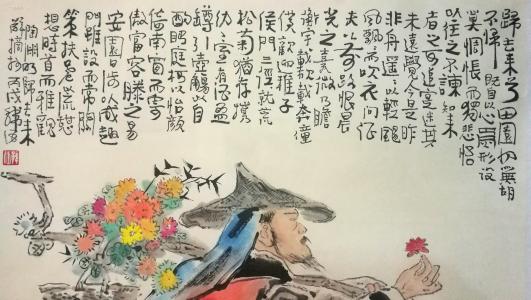 歸去来兮田園將蕪胡
不歸既自以心爲形役
奚惆悵而獨悲悟
以往之不諫知来
者之可追寔迷其
未遠覺今是昨
非舟遥以輕颺
風飄而吹衣问征
夫以前路恨晨
光之熹微乃瞻
衡宇載欣載奔僮
僕歡迎稚子
候門三徑就荒
松菊猶存攜
幼入室有酒盈
樽引壺觴以自
酌眄庭柯以怡顔
倚南窗而寄
傲審容膝之易
安園日涉以成趣
門雖設而常關
策扶老以流憩
時首而遐觀
陶淵明歸去来
辭摘抄